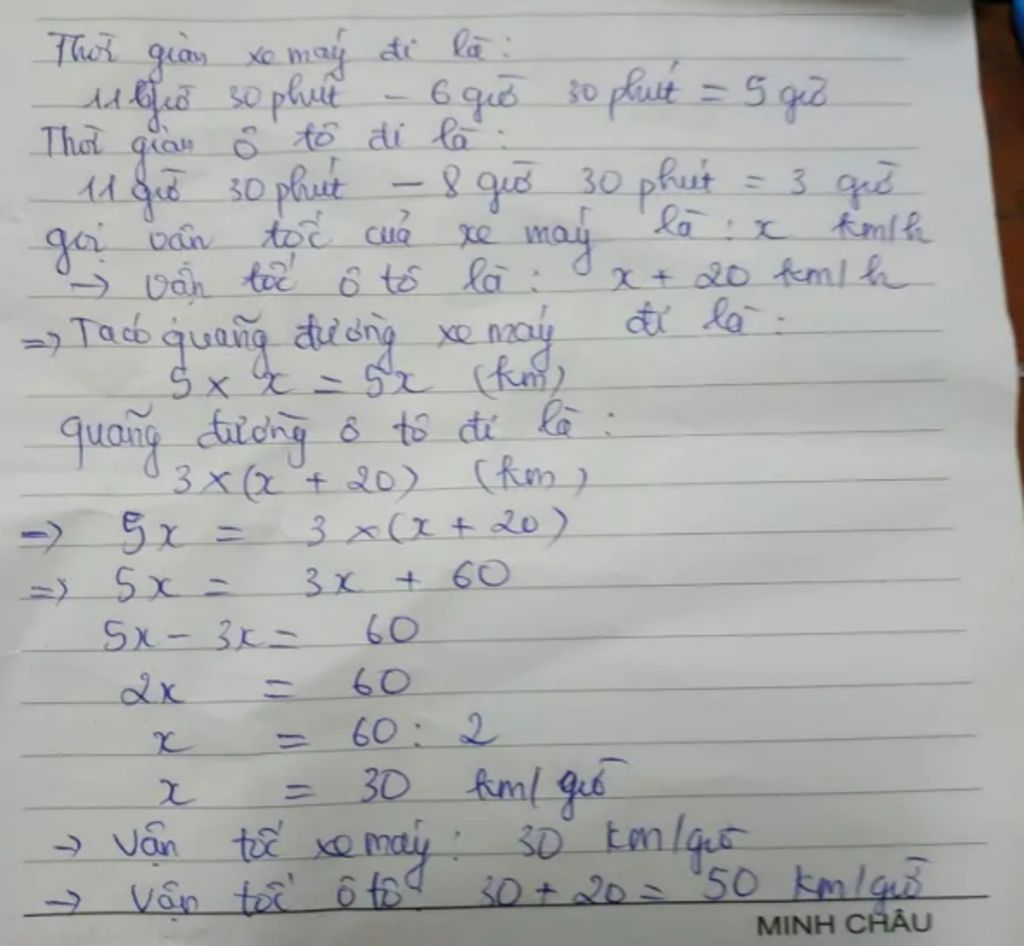 Thời gian xe máy đi là:
11 giờ 30 phút - 6 giờ 30 phút = 5 giờ
Thời gian ô tô đi là:
11 giờ 30 phút - 8 giờ 30 phút = 3 giờ
gọi vân tốc của xe máy là: x km/h
→ vận tốc ô tô là: x + 20 km/h
=> Ta có quãng đường xe máy đi là:
5 × x = 5x (km)
quãng đường ô tô đi là:
3 × (x + 20) (km)
=> 5x = 3 × (x + 20)
=> 5x = 3x + 60
5x - 3x = 60
2x = 60
x = 60 : 2
x = 30 km/giờ
→ Vận tốc xe máy: 30 km/giờ
→ Vận tốc ô tô 30 + 20 = 50 km/giờ
MINH CHÂU